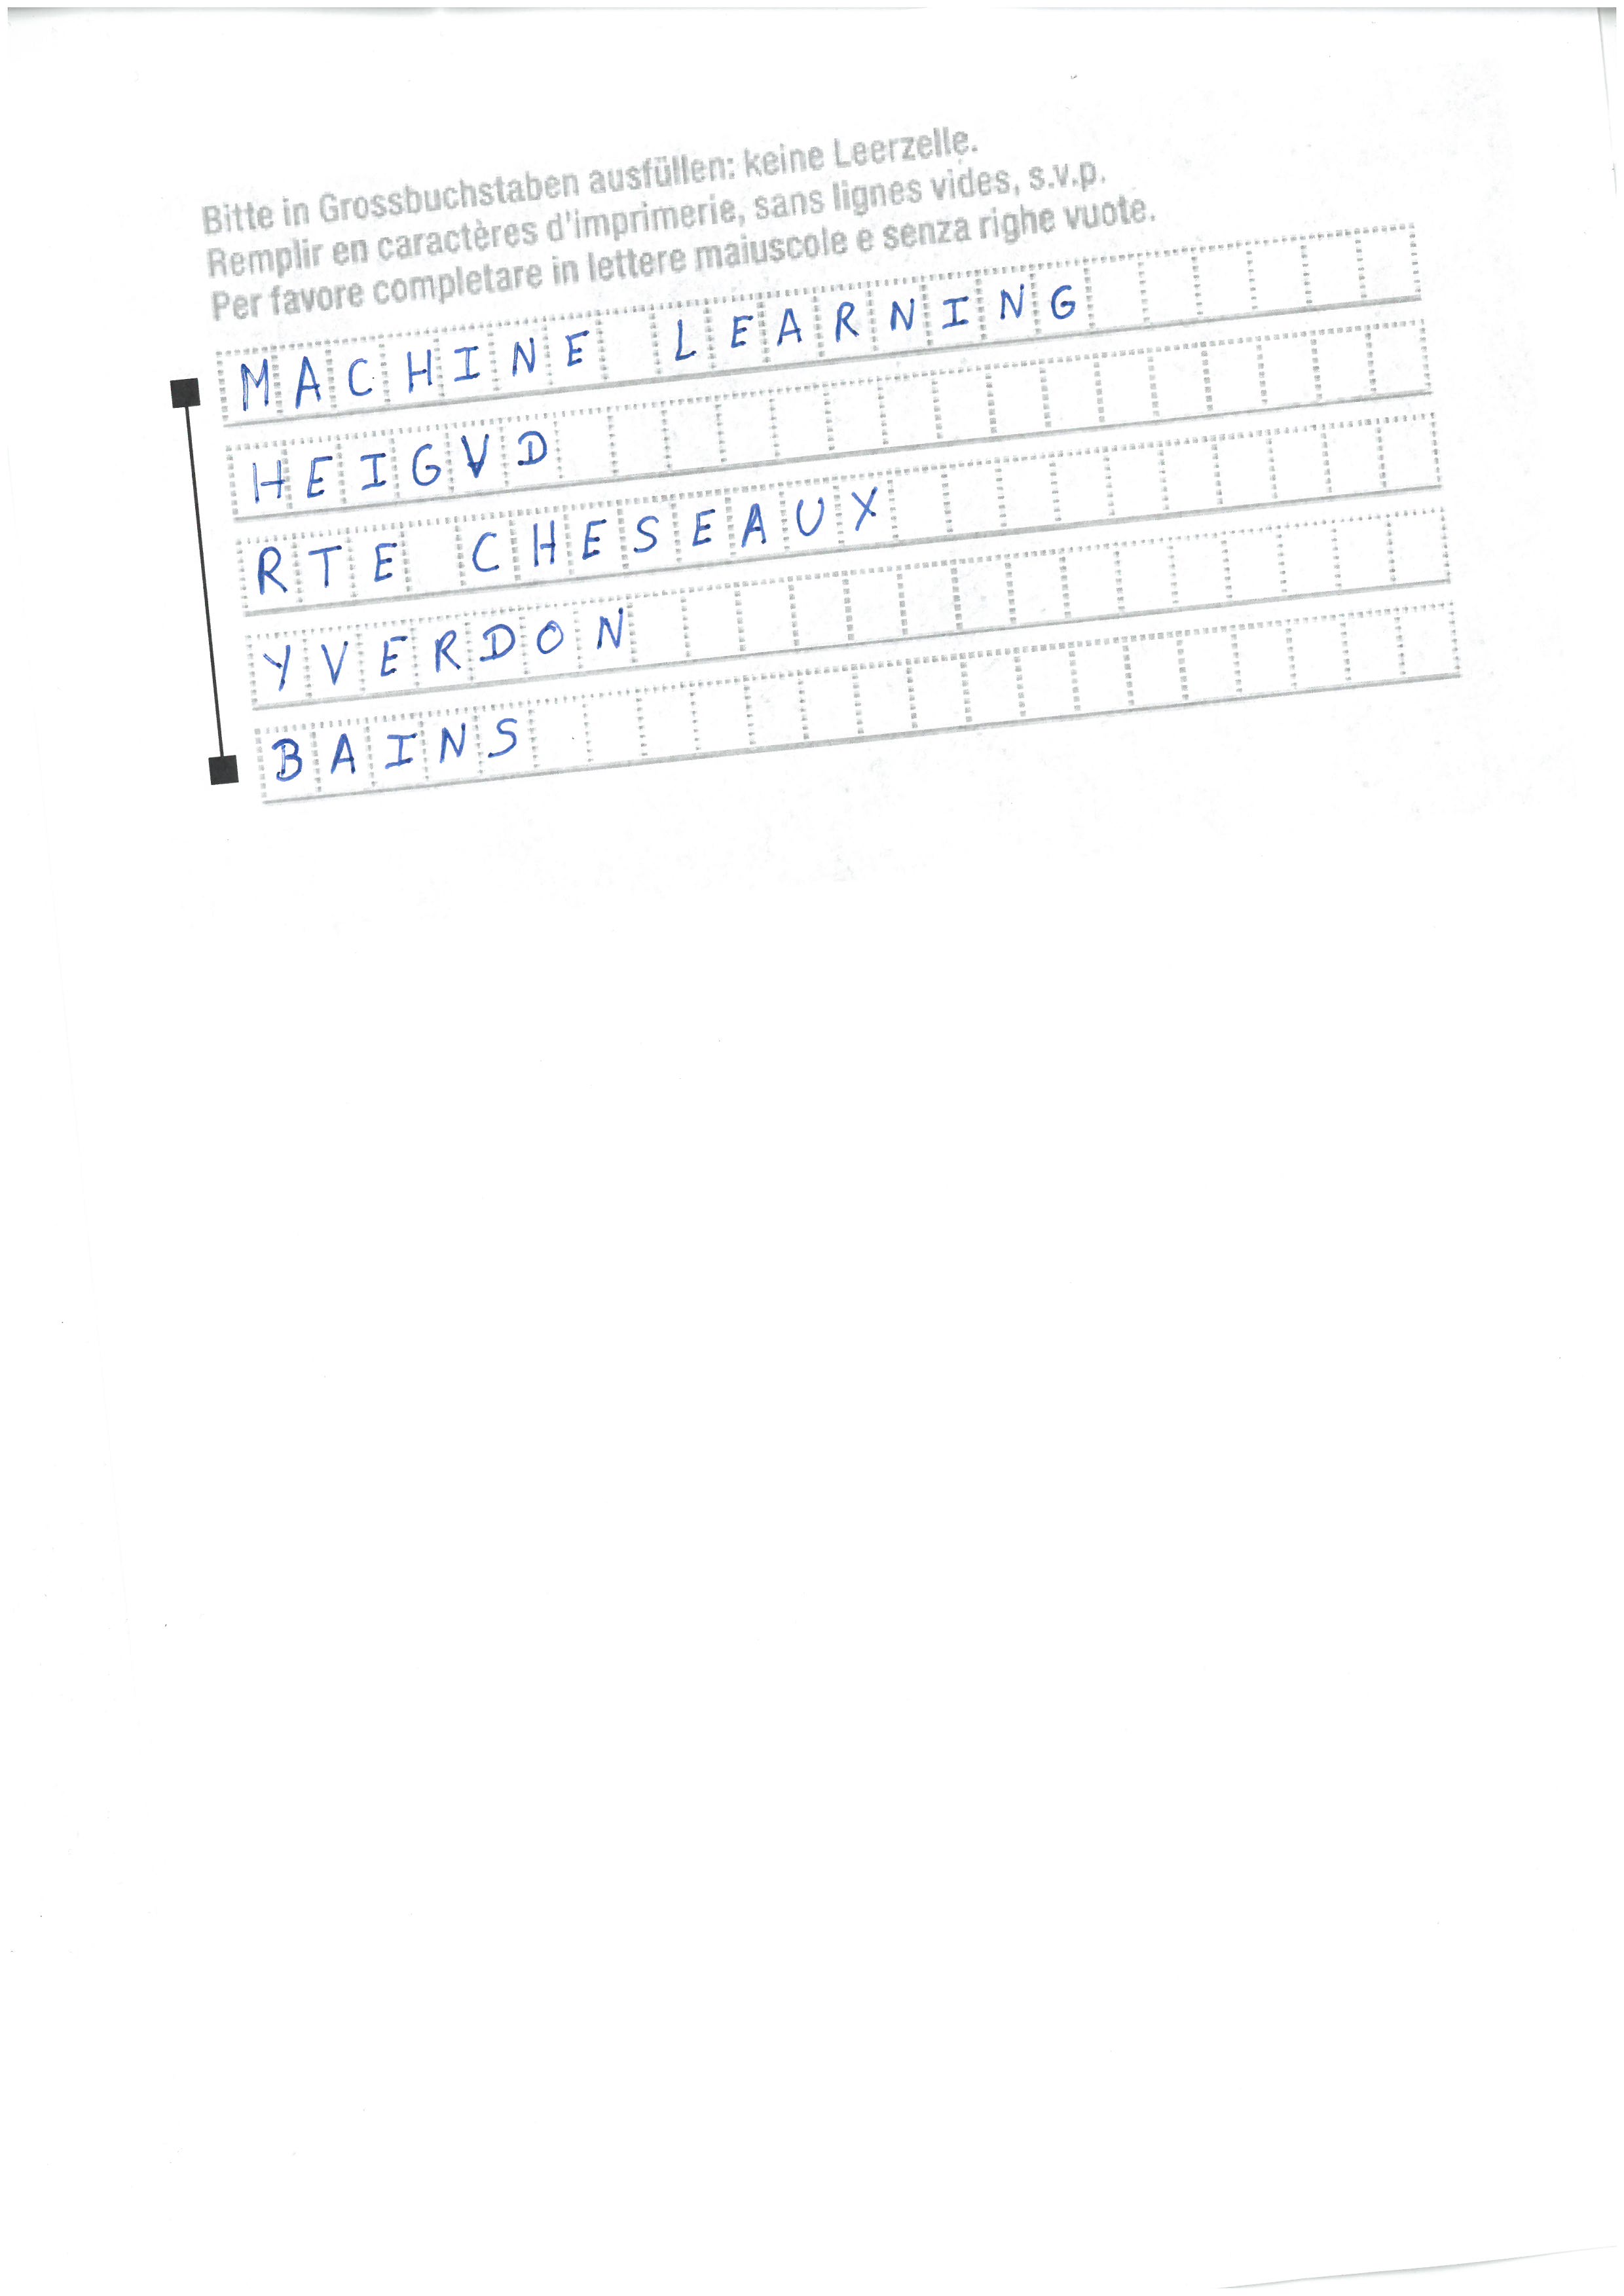 Bitte in Grossbuchstaben ausfüllen: keine Leerzelle.
Remplir en caractères d'imprimerie, sans lignes vides, s.v.p.
Per favore completare in lettere maiuscole e senza righe vuote.
MACHINE LEARNING
HEIGVD
RTE CHESEAUX
YVERDON
BAINS